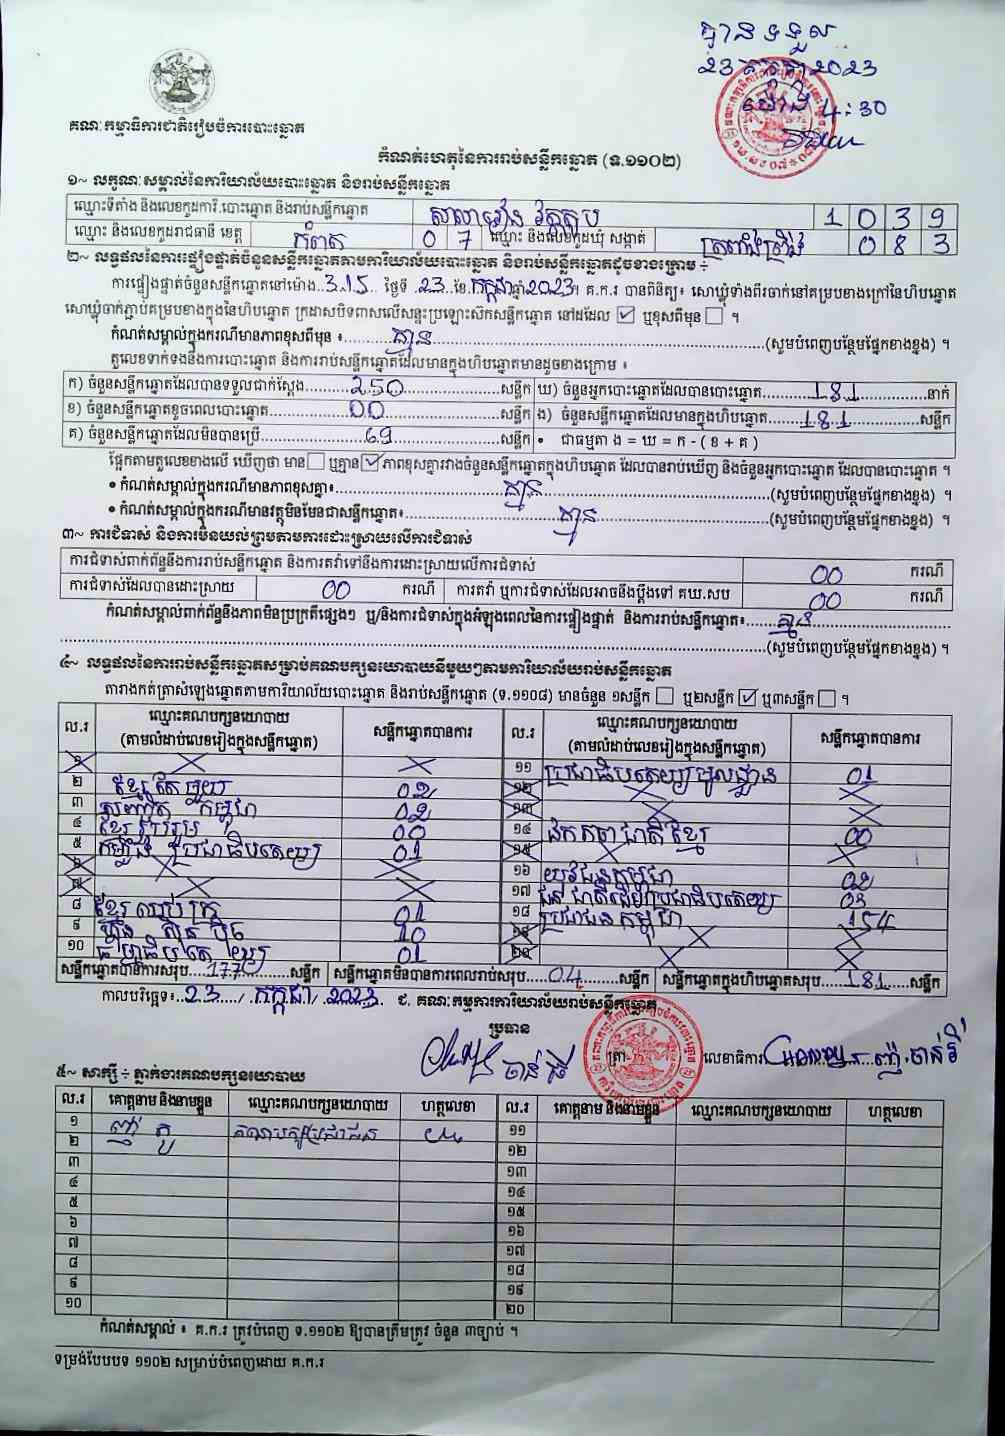 បានទទួល
23 កក្កដា 2023
ម៉ោង 4:30
គណៈកម្មាធិការជាតិរៀបចំការបោះឆ្នោត
កំណត់ហេតុនៃការរាប់សន្លឹកឆ្នោត (ទ.១១០២)
១~ លក្ខណៈសម្គាល់នៃការិយាល័យបោះឆ្នោត និងរាប់សន្លឹកឆ្នោត
ឈ្មោះទីតាំង និងលេខកូដការិ.បោះឆ្នោត និងរាប់សន្លឹកឆ្នោត 1039
ឈ្មោះ និងលេខកូដរាជធានី ខេត្ត កំពត 07 ឈ្មោះ និងលេខកូដឃុំ សង្កាត់ 083
២~ លទ្ធផលនៃការផ្ទៀងផ្ទាត់ចំនួនសន្លឹកឆ្នោតតាមការិយាល័យបោះឆ្នោត និងរាប់សន្លឹកឆ្នោតដូចខាងក្រោម ÷
ការផ្ទៀងផ្ទាត់ចំនួនសន្លឹកឆ្នោតនៅម៉ោង..3.15.. ថ្ងៃទី .23.ខែ.កក្កដា ឆ្នាំ 2023។ គ.ក.រ បានពិនិត្យ៖ សោឃ្លុំទាំងពីរចាក់នៅគម្របខាងក្រៅនៃហិបឆ្នោត
សោឃ្លុំចាក់ភ្ជាប់គម្របខាងក្នុងនៃហិបឆ្នោត ក្រដាសបិទពាសលើសន្ទះប្រឡោះស៊កសន្លឹកឆ្នោត នៅដដែល ☑ ឬខុសពីមុន ☐ ។
កំណត់សម្គាល់ក្នុងករណីមានភាពខុសពីមុន ៖ គ្មាន (សូមបំពេញបន្ថែមផ្នែកខាងខ្នង) ។
តួលេខទាក់ទងនឹងការបោះឆ្នោត និងការរាប់សន្លឹកឆ្នោតដែលមានក្នុងហិបឆ្នោតមានដូចខាងក្រោម ៖
ក) ចំនួនសន្លឹកឆ្នោតដែលបានទទួលជាក់ស្តែង 250 សន្លឹក ឃ) ចំនួនអ្នកបោះឆ្នោតដែលបានបោះឆ្នោត 181 នាក់
ខ) ចំនួនសន្លឹកឆ្នោតខូចពេលបោះឆ្នោត 00 សន្លឹក ង) ចំនួនសន្លឹកឆ្នោតដែលមានក្នុងហិបឆ្នោត 181 សន្លឹក
គ) ចំនួនសន្លឹកឆ្នោតដែលមិនបានប្រើ 69 សន្លឹក • ជាធម្មតា ង = ឃ = ក - ( ខ + គ )
ផ្អែកតាមតួលេខខាងលើ ឃើញថា មាន ☐ ឬគ្មាន ☑ ភាពខុសគ្នារវាងចំនួនសន្លឹកឆ្នោតក្នុងហិបឆ្នោត ដែលបានរាប់ឃើញ និងចំនួនអ្នកបោះឆ្នោត ដែលបានបោះឆ្នោត ។
• កំណត់សម្គាល់ក្នុងករណីមានភាពខុសគ្នា៖ គ្មាន (សូមបំពេញបន្ថែមផ្នែកខាងខ្នង) ។
• កំណត់សម្គាល់ក្នុងករណីមានវត្ថុមិនមែនជាសន្លឹកឆ្នោត៖ គ្មាន (សូមបំពេញបន្ថែមផ្នែកខាងខ្នង) ។
៣~ ការជំទាស់ និងការមិនយល់ព្រមតាមការដោះស្រាយលើការជំទាស់
ការជំទាស់ពាក់ព័ន្ធនឹងការរាប់សន្លឹកឆ្នោត និងការតវ៉ាទៅនឹងការដោះស្រាយលើការជំទាស់ 00 ករណី
ការជំទាស់ដែលបានដោះស្រាយ 00 ករណី ការតវ៉ា ឬការជំទាស់ដែលអាចនឹងប្តឹងទៅ គឃ.សប 00 ករណី
កំណត់សម្គាល់ពាក់ព័ន្ធនឹងភាពមិនប្រក្រតីផ្សេងៗ ឬ/និងការជំទាស់ក្នុងអំឡុងពេលនៃការផ្ទៀងផ្ទាត់ និងការរាប់សន្លឹកឆ្នោត៖ គ្មាន
(សូមបំពេញបន្ថែមផ្នែកខាងខ្នង) ។
៤~ លទ្ធផលនៃការរាប់សន្លឹកឆ្នោតសម្រាប់គណបក្សនយោបាយនីមួយៗតាមការិយាល័យរាប់សន្លឹកឆ្នោត
តារាងកត់ត្រាសំឡេងឆ្នោតតាមការិយាល័យបោះឆ្នោត និងរាប់សន្លឹកឆ្នោត (ទ.១១០៨) មានចំនួន ១សន្លឹក ☐ ឬ២សន្លឹក ☑ ឬ៣សន្លឹក ☐ ។
ល.រ ឈ្មោះគណបក្សនយោបាយ (តាមលំដាប់លេខរៀងក្នុងសន្លឹកឆ្នោត) សន្លឹកឆ្នោតបានការ ល.រ ឈ្មោះគណបក្សនយោបាយ (តាមលំដាប់លេខរៀងក្នុងសន្លឹកឆ្នោត) សន្លឹកឆ្នោតបានការ
១ ១១ ប្រជាធិបតេយ្យមូលដ្ឋាន 01
២ ខ្មែរតែមួយ 02 ១២
៣ កម្ពុជា 02 ១៣
៤ ខ្មែររួបរួម 00 ១៤ ឯកភាពជាតិខ្មែរ 00
៥ កម្លាំងប្រជាធិបតេយ្យ 01 ១៥
៦ ១៦ យុវជនកម្ពុជា 02
៧ ១៧ 03
៨ ខ្មែរឈប់ក្រ 01 ១៨ ប្រជាជនកម្ពុជា 154
៩ ហ៊្វុនស៊ិនប៉ិច 10 ១៩
១០ ធម្មាធិបតេយ្យ 01 ២០
សន្លឹកឆ្នោតបានការសរុប 177 សន្លឹក សន្លឹកឆ្នោតមិនបានការពេលរាប់សរុប 04 សន្លឹក សន្លឹកឆ្នោតក្នុងហិបឆ្នោតសរុប 181 សន្លឹក
កាលបរិច្ឆេទ៖ 23 / កក្កដា / 2023 ជ. គណៈកម្មការការិយាល័យរាប់សន្លឹកឆ្នោត
ប្រធាន
ត្រា លេខាធិការ
៥~ សាក្សី ÷ ភ្នាក់ងារគណបក្សនយោបាយ
ល.រ គោត្តនាម និងនាមខ្លួន ឈ្មោះគណបក្សនយោបាយ ហត្ថលេខា ល.រ គោត្តនាម និងនាមខ្លួន ឈ្មោះគណបក្សនយោបាយ ហត្ថលេខា
១ គណបក្សប្រជាជន ១១
២ ១២
៣ ១៣
៤ ១៤
៥ ១៥
៦ ១៦
៧ ១៧
៨ ១៨
៩ ១៩
១០ ២០
កំណត់សម្គាល់ ៖ គ.ក.រ ត្រូវបំពេញ ទ.១១០២ ឱ្យបានត្រឹមត្រូវ ចំនួន ៣ច្បាប់ ។
ទម្រង់បែបបទ ១១០២ សម្រាប់បំពេញដោយ គ.ក.រ